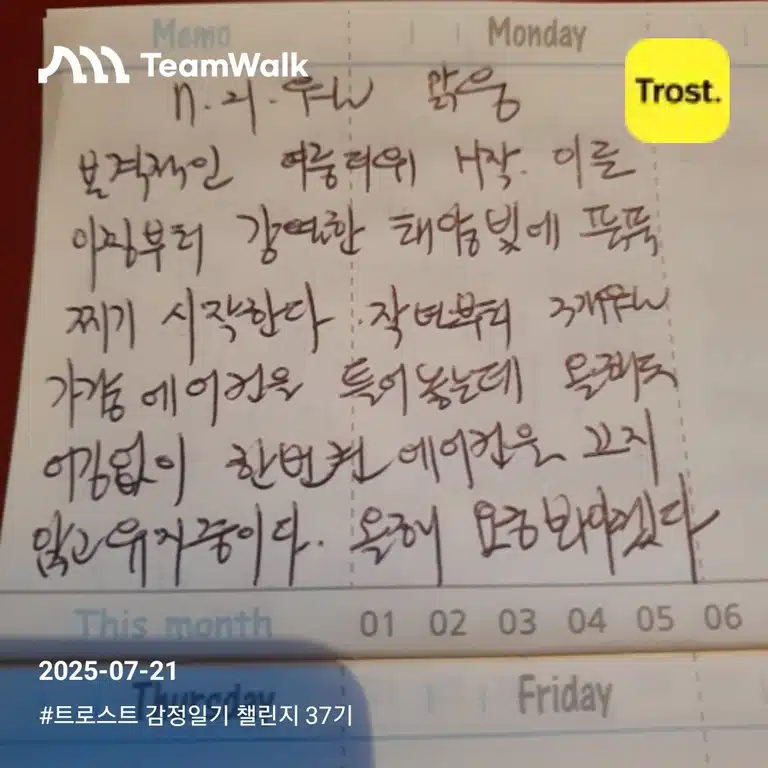 Memo Monday
TeamWalk
Trost.
7. 21. 월 맑음
본격적인 여름더위 시작. 이른
아침부터 강렬한 태양빛에 푹푹
찌기 시작한다. 작년부터 3개월
가량 에어컨을 틀어 놓는데 올해도
어김없이 한번켠 에어컨을 끄지
않고 유지중이다. 올해
This month 01 02 03 04 05 06
2025-07-21
Thursday Friday
#트로스트 감정일기 챌린지 37기